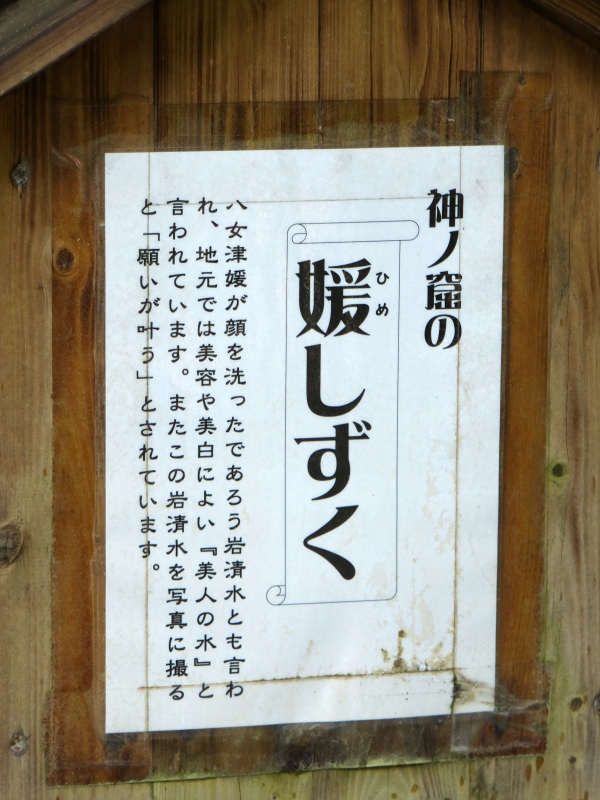 神ノ窟の
媛しずく
ひめ
八女津媛が顔を洗ったであろう岩清水とも言わ
れ、地元では美容や美白によい『美人の水』と
言われています。またこの岩清水を写真に撮る
と「願いが叶う」とされています。